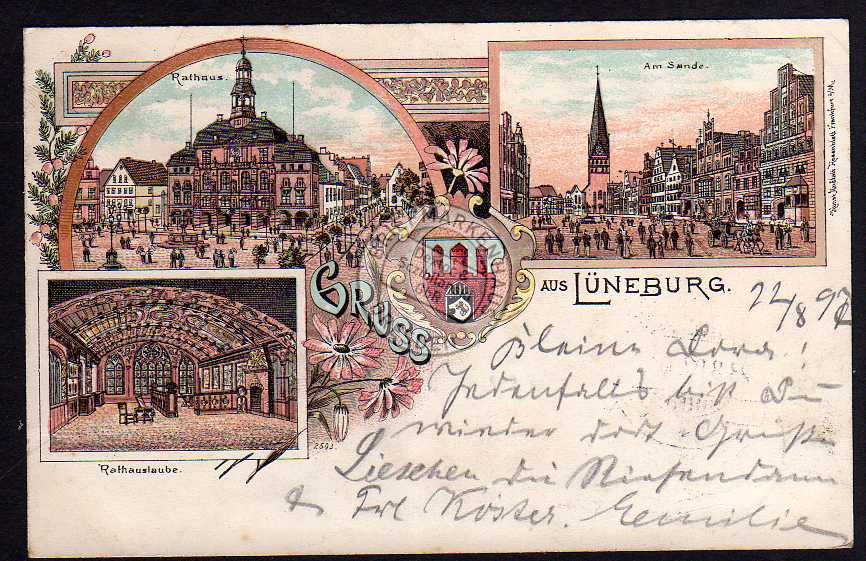 Rathaus.
Am Sande.
GRUSS
AUS LÜNEBURG.
22/8 97
Kleine Dora!
Jedenfalls bist Du
wieder dort Grüße
Lieschen die
& Frl Köster. Emilie
Rathauslaube.
2593.